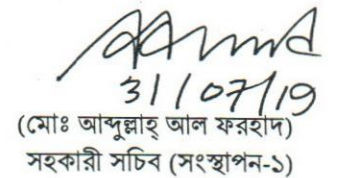 31/07/19
(মোঃ আব্দুল্লাহ্ আল ফরহাদ)
সহকারী সচিব (সংস্থাপন-১)